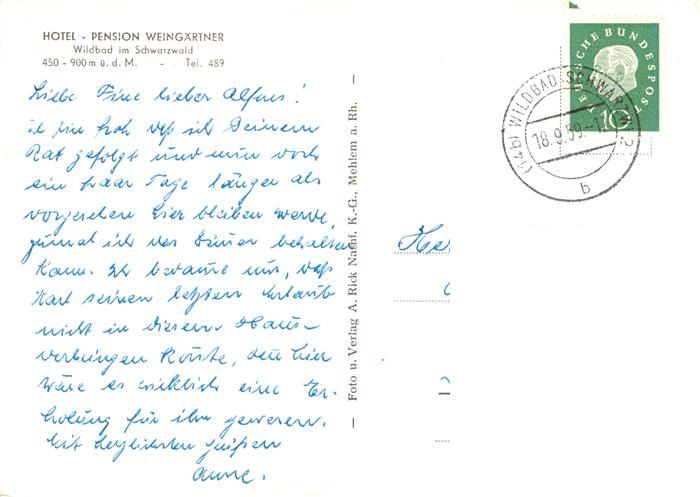 HOTEL - PENSION WEINGÄRTNER
Wildbad im Schwarzwald
450 - 900 m ü. d. M. - Tel. 489
Liebe Fine lieber Alfons!
ich bin froh daß ich Deinem
Rat gefolgt und nun doch
ein paar Tage länger als
vorgesehen hier bleiben werde,
zumal ich das Zimmer behalten
kann. Ich bedaure nur, daß
Karl seinen letzten Urlaub
nicht in diesem Haus
verbringen konnte, denn hier
wäre es wirklich eine Er-
holung für ihn gewesen.
Mit herzlichsten Grüßen
Anne.
Foto u. Verlag A. Rick Nachf. K.-G., Mehlem a. Rh.
DEUTSCHE BUNDESPOST
10
(14b) WILDBAD (SCHWARZW)
18.9.59
b